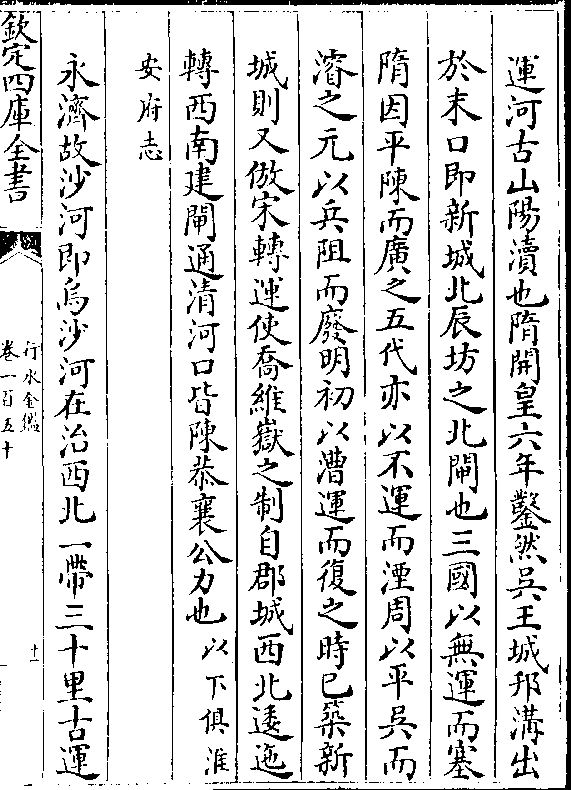 運河古山陽瀆也隋開皇六年鑿然吳王城邗溝出
於末口即新城北辰坊之北閘也三國以無運而塞
隋因平陳而廣之五代亦以不運而湮周以平吳而
濬之元以兵阻而廢明初以漕運而復之時已築新
城則又倣宋轉運使喬維嶽之制自郡城西北逶迤
轉西南建閘通清河口皆陳恭襄公力也以下俱淮
安府志
永濟故沙河即烏沙河在治西北一帶三十里古運
欽定四庫全書
行水金鑑
卷一百五十
十一